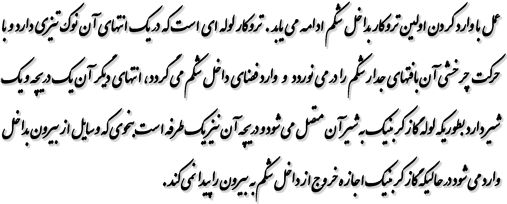 عمل با وارد کردن اولین تروکار بداخل شکم ادامه می یابد . تروکار لوله ای است که در یک انتهای آن نوک تیزی دارد و با
حرکت چرخشی آن بافتهای جدار شکم را در می نوردد و وارد فضای داخل شکم می گردد، انتهای دیگر آن یک دریچه و یک
شیر دارد بطوریکه لوله گاز کربنیک به شیر آن متصل می شود و دریچه آن نیز یک طرفه است بنحوی که وسایل از بیرون بداخل
وارد می شود در حالیکه گاز کربنیک اجازه خروج از داخل شکم به بیرون را پیدا نمی کند .